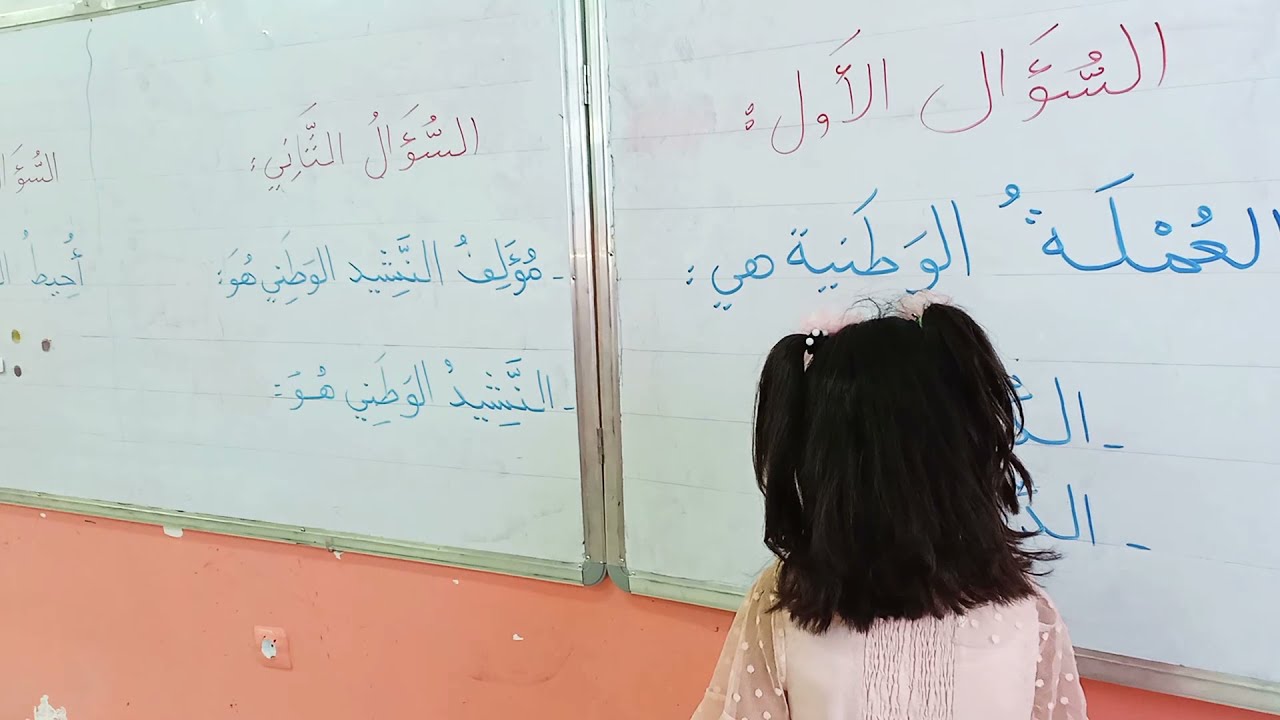 السُّؤَال الأَول:
العُمْلَةُ الوَطَنية هي:
-
-
السُّؤَالُ الثَّانِي:
- مُؤَلِفُ النَّشِيد الوَطَنِي هُوَ:
- النَّشِيدُ الوَطَنِي هُوَ:
أُحِيطُ